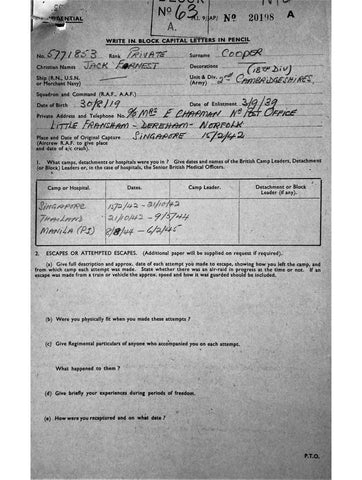 BLOCK
No 63
A.
Nº 20198 A
WRITE IN BLOCK CAPITAL LETTERS IN PENCIL
No. 5771853 Rank PRIVATE Surname COOPER
Christian Names JACK EARNEST Decorations (18TH DIV)
Ship (R.N., U.S.N. or Merchant Navy) Unit & Div. (Army) 2nd CAMBRIDGESHIRES.
Squadron and Command (R.A.F., A.A.F.)
Date of Birth 30/8/19 Date of Enlistment 3/9/39
Private Address and Telephone No. C/O MRS E CHAPMAN POST OFFICE
LITTLE FRANSHAM - DEREHAM - NORFOLK
Place and Date of Original Capture SINGAPORE 15/2/42
(Aircrew R.A.F. to give place
and date of a/c crash).
1. What camps, detachments or hospitals were you in? Give dates and names of the British Camp Leaders, Detachment
(or Block) Leaders or, in the case of hospitals, the Senior British Medical Officers.
Camp or Hospital. Dates. Camp Leader. Detachment or Block Leader (if any).
SINGAPORE 15/2/42 - 21/10/42
THAILAND 21/10/42 - 9/5/44
MANILA (P.I) - 6/2/45
2. ESCAPES OR ATTEMPTED ESCAPES. (Additional paper will be supplied on request if required).
(a) Give full description and approx. date of each attempt you made to escape, showing how you left the camp, and
from which camp each attempt was made. State whether there was an air-raid in progress at the time or not. If an
escape was made from a train or vehicle the approx. speed and how it was guarded should be included.
(b) Were you physically fit when you made these attempts?
(c) Give Regimental particulars of anyone who accompanied you on each attempt.
What happened to them?
(d) Give briefly your experiences during periods of freedom.
(e) How were you recaptured and on what date?
P.T.O.